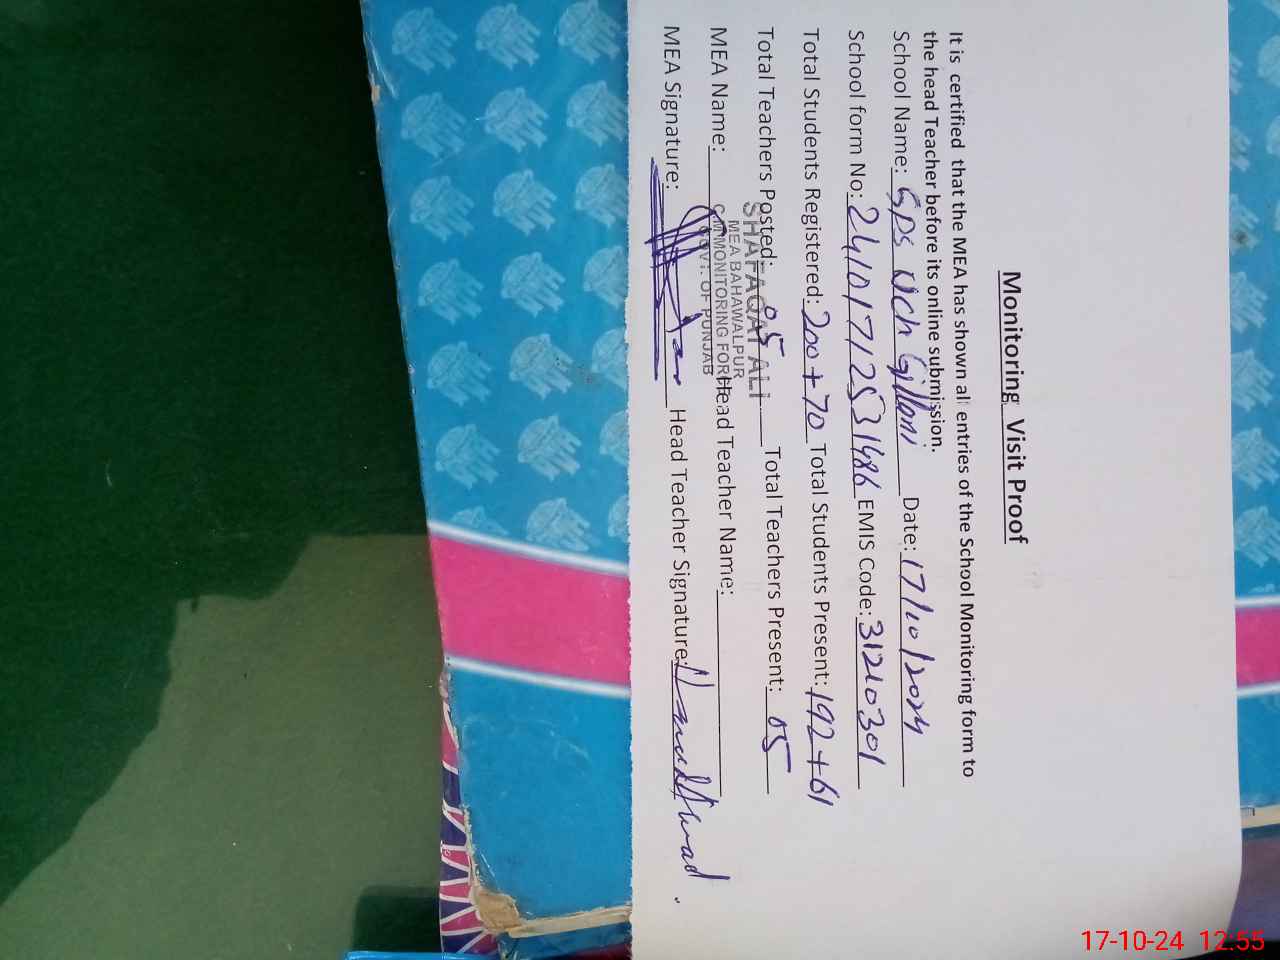 Monitoring Visit Proof
It is certified that the MEA has shown all entries of the School Monitoring form to
the head Teacher before its online submission.
School Name: GPS Uch Gillani Date: 17/10/2024
School form No: 24101712531486 EMIS Code: 31210301
Total Students Registered: 200+70 Total Students Present: 192+61
Total Teachers Posted: 05 Total Teachers Present: 05
SHAFAQAT ALI
MEA BAHAWALPUR
C.M MONITORING FORCE
GOVT: OF PUNJAB
MEA Name: Head Teacher Name:
MEA Signature: Head Teacher Signature:
17-10-24 12:55